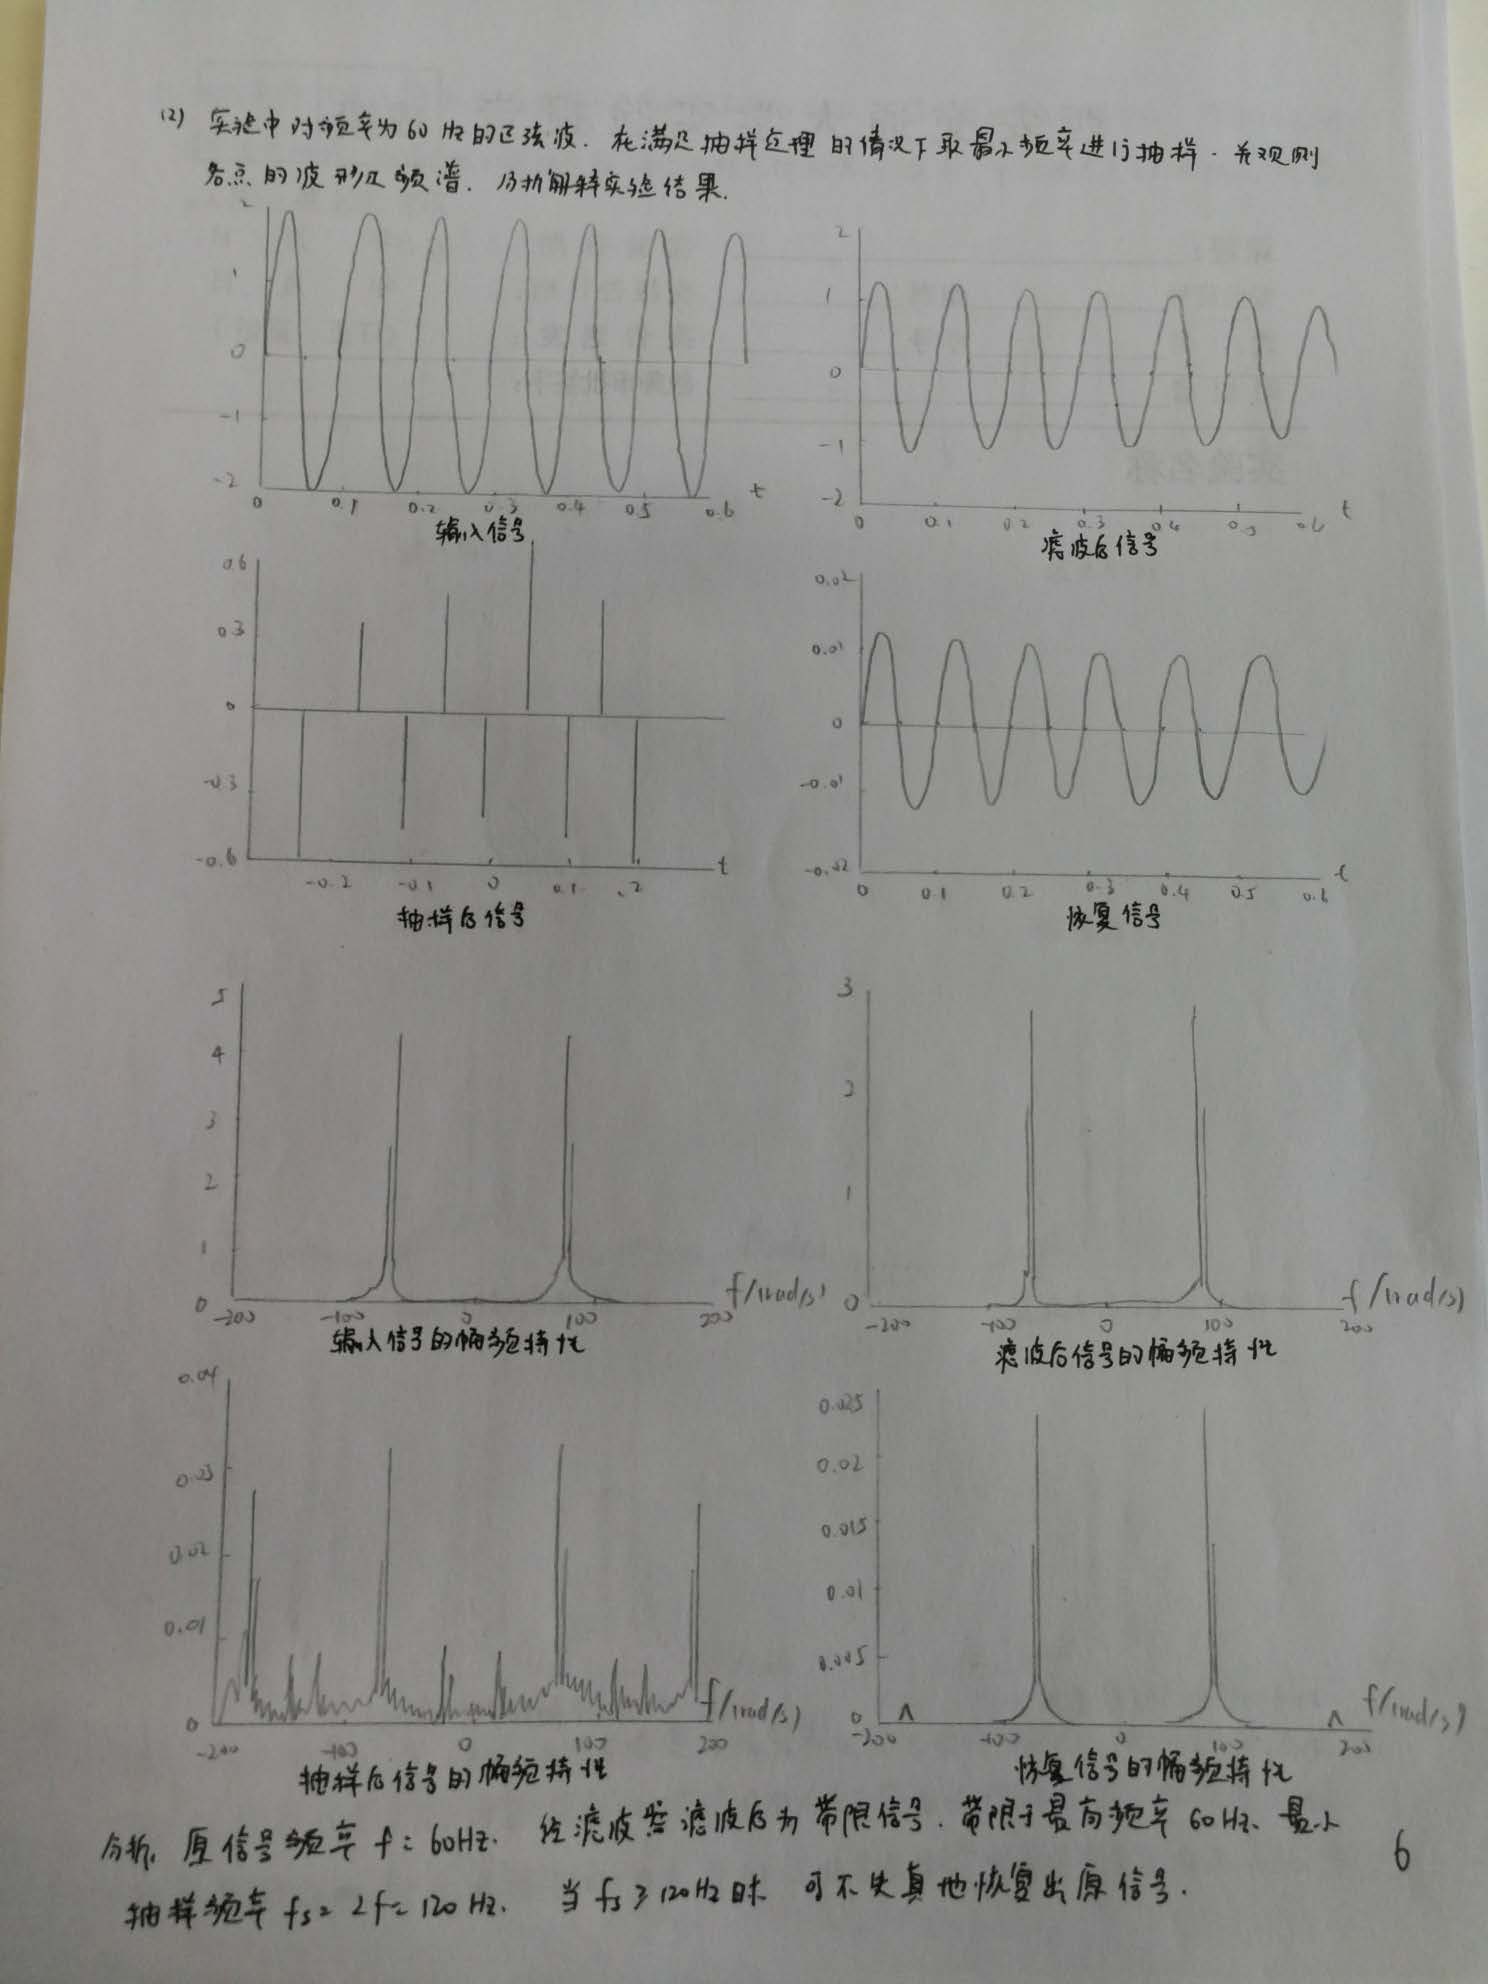 (2) 实验中对频率为60Hz的正弦波，在满足抽样定理的情况下取最小频率进行抽样，并观测
各点的波形及频谱，分析解释实验结果.
2
1
0
-1
-2
0 0.1 0.2 0.3 0.4 0.5 0.6 t
输入信号
2
1
0
-1
-2
0 0.1 0.2 0.3 0.4 0.5 0.6 t
滤波后信号
0.6
0.3
0
-0.3
-0.6
-0.2 -0.1 0 0.1 .2 t
抽样后信号
0.02
0.01
0
-0.01
-0.02
0 0.1 0.2 0.3 0.4 0.5 0.6 t
恢复信号
5
4
3
2
1
0
-200 -100 0 100 200 f/(rad/s)
输入信号的幅频特性
3
2
1
0
-200 -100 0 100 200 f/(rad/s)
滤波后信号的幅频特性
0.04
0.03
0.02
0.01
0
-200 -100 0 100 200 f/(rad/s)
抽样后信号的幅频特性
0.025
0.02
0.015
0.01
0.005
0
-200 -100 0 100 200 f/(rad/s)
恢复信号的幅频特性
分析: 原信号频率 f=60Hz. 经滤波器滤波后为带限信号，带限于最高频率60Hz、最小
抽样频率 fs=2f=120Hz. 当fs≥120Hz时 可不失真地恢复出原信号.
6